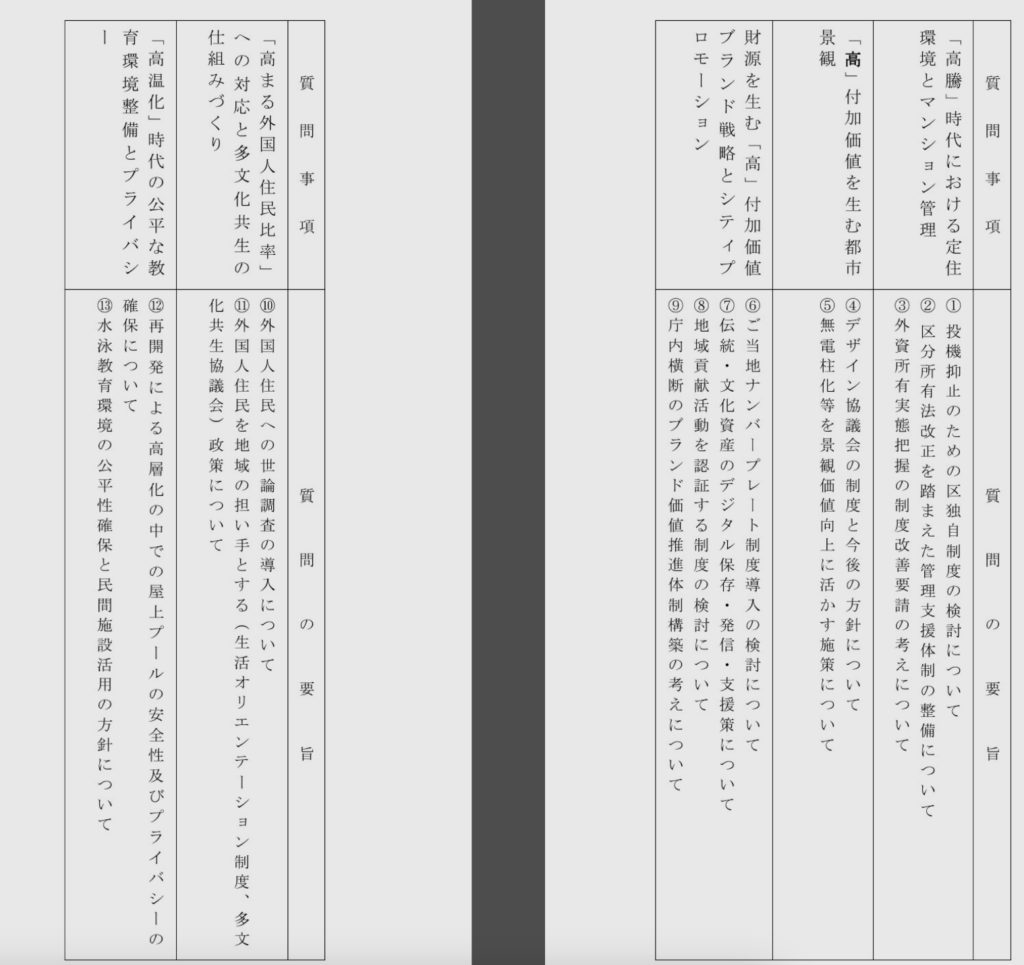 質問事項
「高騰」時代における定住
環境とマンション管理
「高」付加価値を生む都市
景観
財源を生む「高」付加価値
ブランド戦略とシティプ
ロモーション
質問の要旨
① 投機抑止のための区独自制度の検討について
② 区分所有法改正を踏まえた管理支援体制の整備について
③外資所有実態把握の制度改善要請の考えについて
④デザイン協議会の制度と今後の方針について
⑤無電柱化等を景観価値向上に活かす施策について
⑥ご当地ナンバープレート制度導入の検討について
⑦伝統・文化資産のデジタル保存・発信・支援策について
⑧地域貢献活動を認証する制度の検討について
⑨庁内横断のブランド価値推進体制構築の考えについて
質問事項
「高まる外国人住民比率」
への対応と多文化共生の
仕組みづくり
「高温化」時代の公平な教
育環境整備とプライバシ
ー
質問の要旨
⑩外国人住民への世論調査の導入について
⑪外国人住民を地域の担い手とする（生活オリエンテーション制度、多文
化共生協議会）政策について
⑫再開発による高層化の中での屋上プールの安全性及びプライバシーの
確保について
⑬水泳教育環境の公平性確保と民間施設活用の方針について